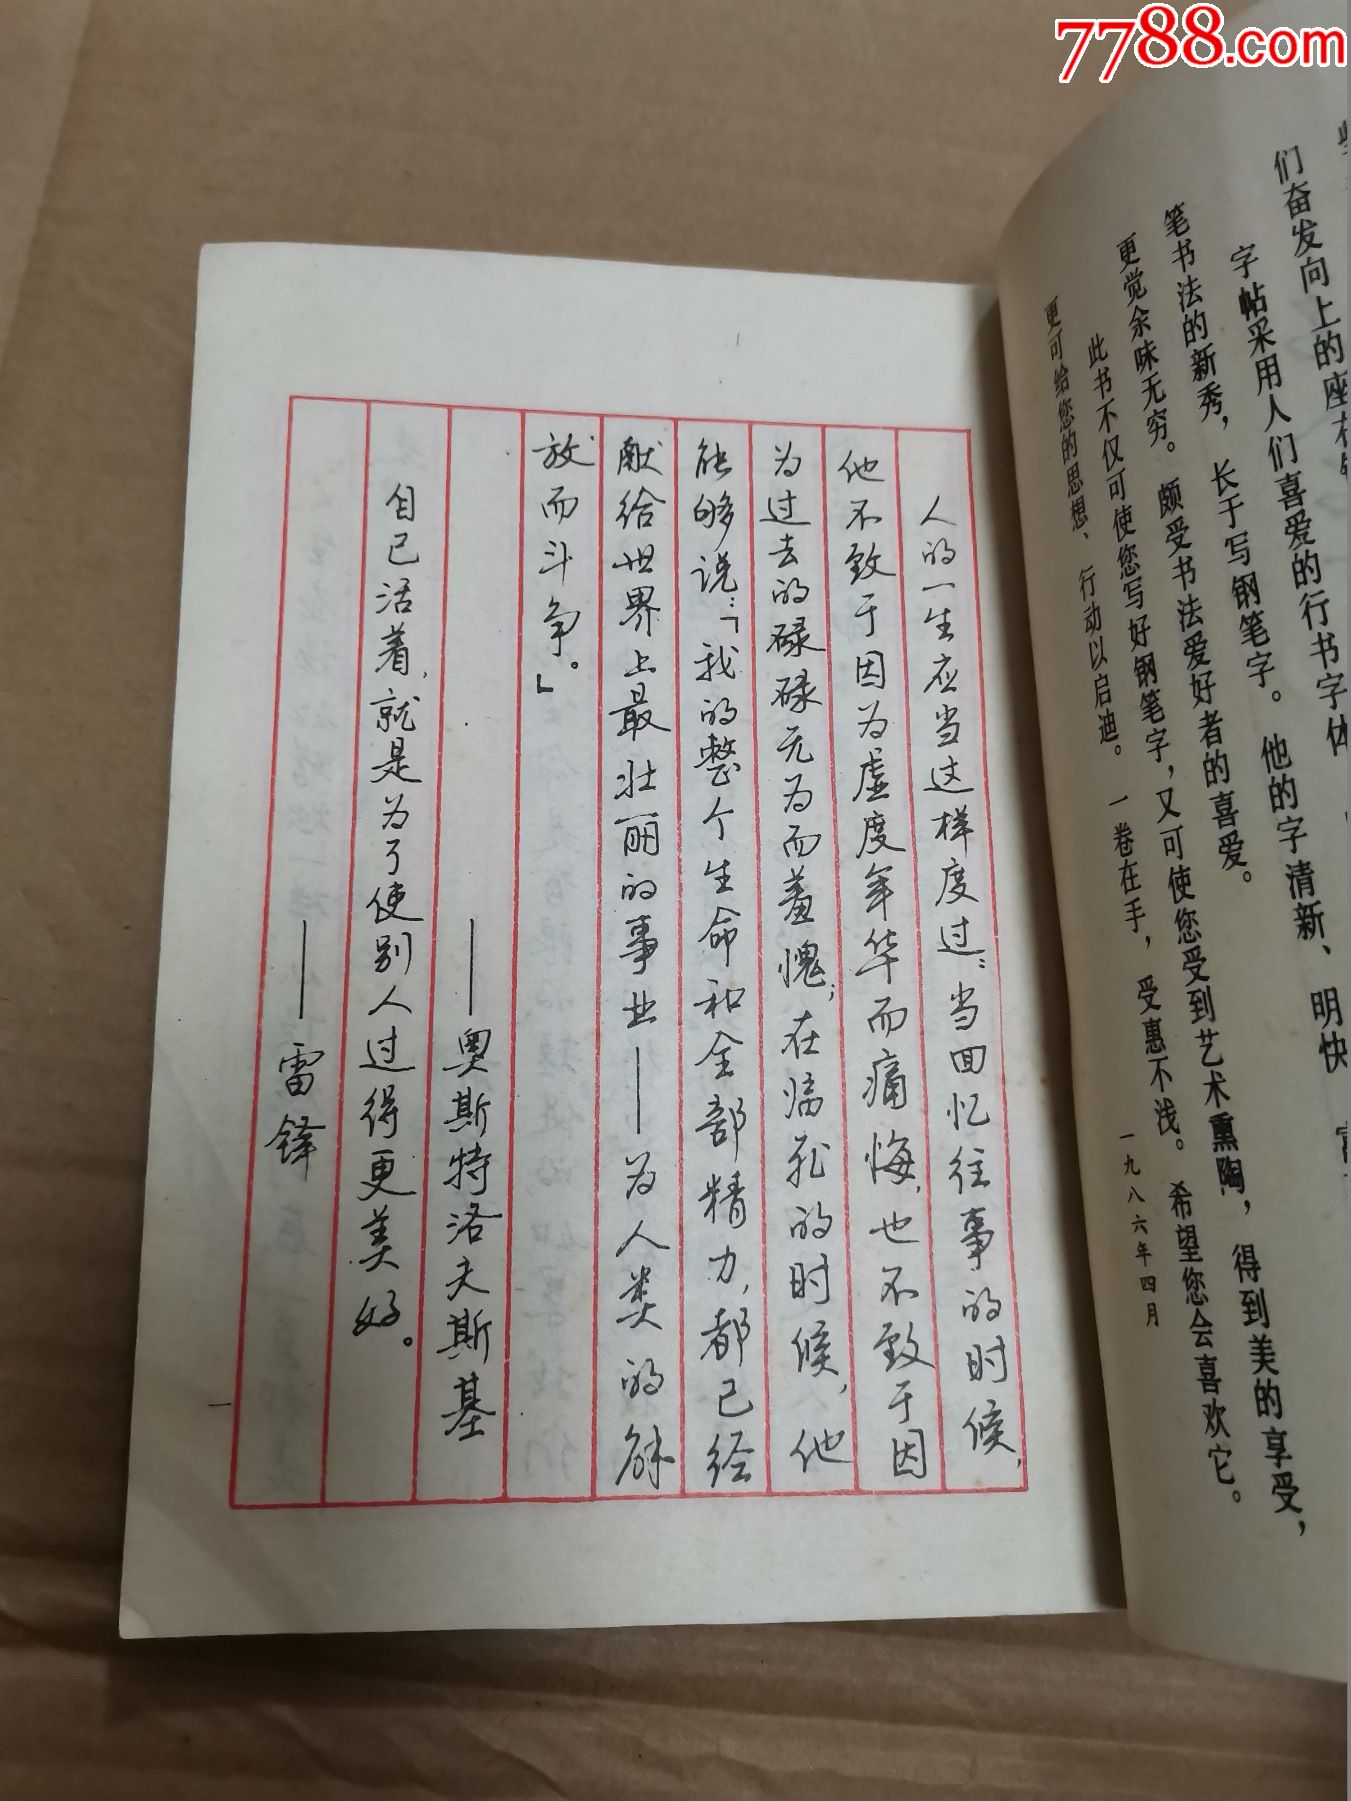 7788.com
们奋发向上的座右
字帖采用人们喜爱的行书字体
笔书法的新秀，长于写钢笔字。他的字清新、明快
更觉余味无穷。颇受书法爱好者的喜爱。
此书不仅可使您写好钢笔字，又可使您受到艺术熏陶，得到美的享受，
更可给您的思想、行动以启迪。一卷在手，受惠不浅。希望您会喜欢它。
一九八六年四月
人的一生应当这样度过：当回忆往事的时候，
他不致于因为虚度年华而痛悔，也不致于因
为过去的碌碌无为而羞愧；在临死的时候，他
能够说：「我的整个生命和全部精力，都已经
献给世界上最壮丽的事业——为人类的解
放而斗争。」
——奥斯特洛夫斯基
自己活着，就是为了使别人过得更美好。
——雷锋
一